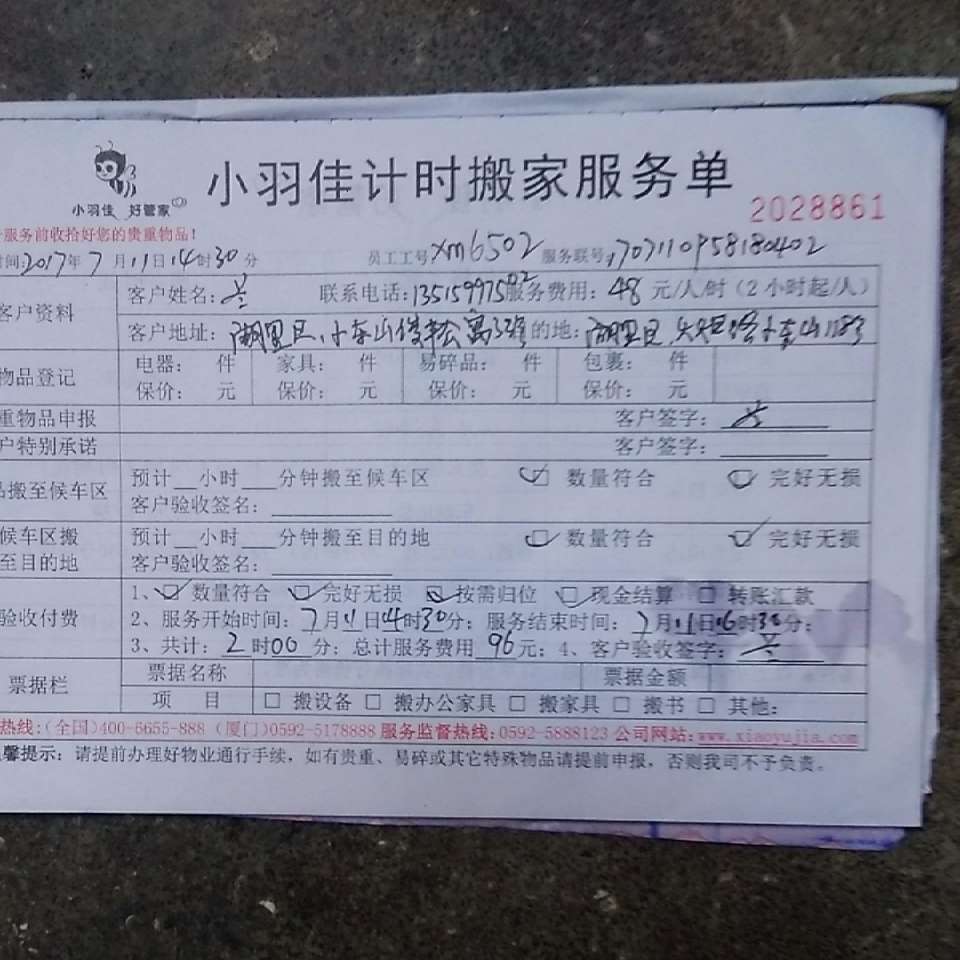 小羽佳计时搬家服务单
小羽佳 好管家
2028861
服务前收拾好您的贵重物品！
时间:2017年7月11日14时30分 员工工号xm6502 服务联号:
客户资料
客户姓名: 兰 联系电话:13515997502 服务费用: 48 元/人/时（2小时起/人）
客户地址: 湖里区 的地: 湖里区
物品登记
电器: 件 家具: 件 易碎品: 件 包裹: 件
保价: 元 保价: 元 保价: 元 保价: 元
重物品申报 客户签字: 兰
户特别承诺 客户签字:
品搬至候车区
预计__小时___分钟搬至候车区 数量符合 完好无损
客户验收签名:
候车区搬至目的地
预计__小时___分钟搬至目的地 数量符合 完好无损
客户验收签名:
验收付费
1、数量符合 完好无损 按需归位 现金结算 转账汇款
2、服务开始时间: 7月11日14时30分; 服务结束时间: 7月11日16时30分;
3、共计: 2时00分; 总计服务费用 96元; 4、客户验收签字: 兰
票据栏
票据名称 票据金额
项 目 搬设备 搬办公家具 搬家具 搬书 其他:
热线:(全国)400-5655-888 (厦门)0592-5178888 服务监督热线:0592-5888123 公司网站:www.xiaoyujia.com
馨提示: 请提前办理好物业通行手续，如有贵重、易碎或其它特殊物品请提前申报，否则我司不予负责。